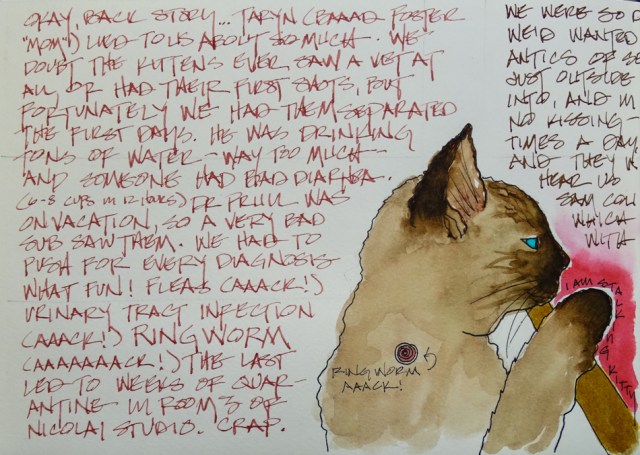 OKAY, BACK STORY... TARYN (BAAAD FOSTER
"MOM") LIED TO US ABOUT SO MUCH. WE
DOUBT THE KITTENS EVER SAW A VET AT
ALL, OR HAD THEIR FIRST SHOTS, BUT
FORTUNATELY WE HAD THEM SEPARATED
THE FIRST DAYS. HE WAS DRINKING
TONS OF WATER - WAY TOO MUCH -
AND SOMEONE HAD BAD DIARHEA..
(6-8 CUPS IN 12 HOURS) DR PRUIU WAS
ON VACATION, SO A VERY BAD
SUB SAW THEM. WE HAD TO
PUSH FOR EVERY DIAGNOSIS
WHAT FUN! FLEAS (AAACK!)
URINARY TRACT INFECTION
(AAACK!) RINGWORM
(AAAAAAACK!) THE LAST
LED TO WEEKS OF QUAR-
ANTINE IN ROOM 3 OF
NICOLAI STUDIO. CRAP.
WE WERE SO
WE'D WANTED
ANTICS OF
JUST OUTSIDE
INTO, AND
NO KISSING -
TIMES A DAY.
AND THEY
HEAR US
SAM COU
WHICH
WITH
I AM STALKING KITTY
RINGWORM
AAACK!